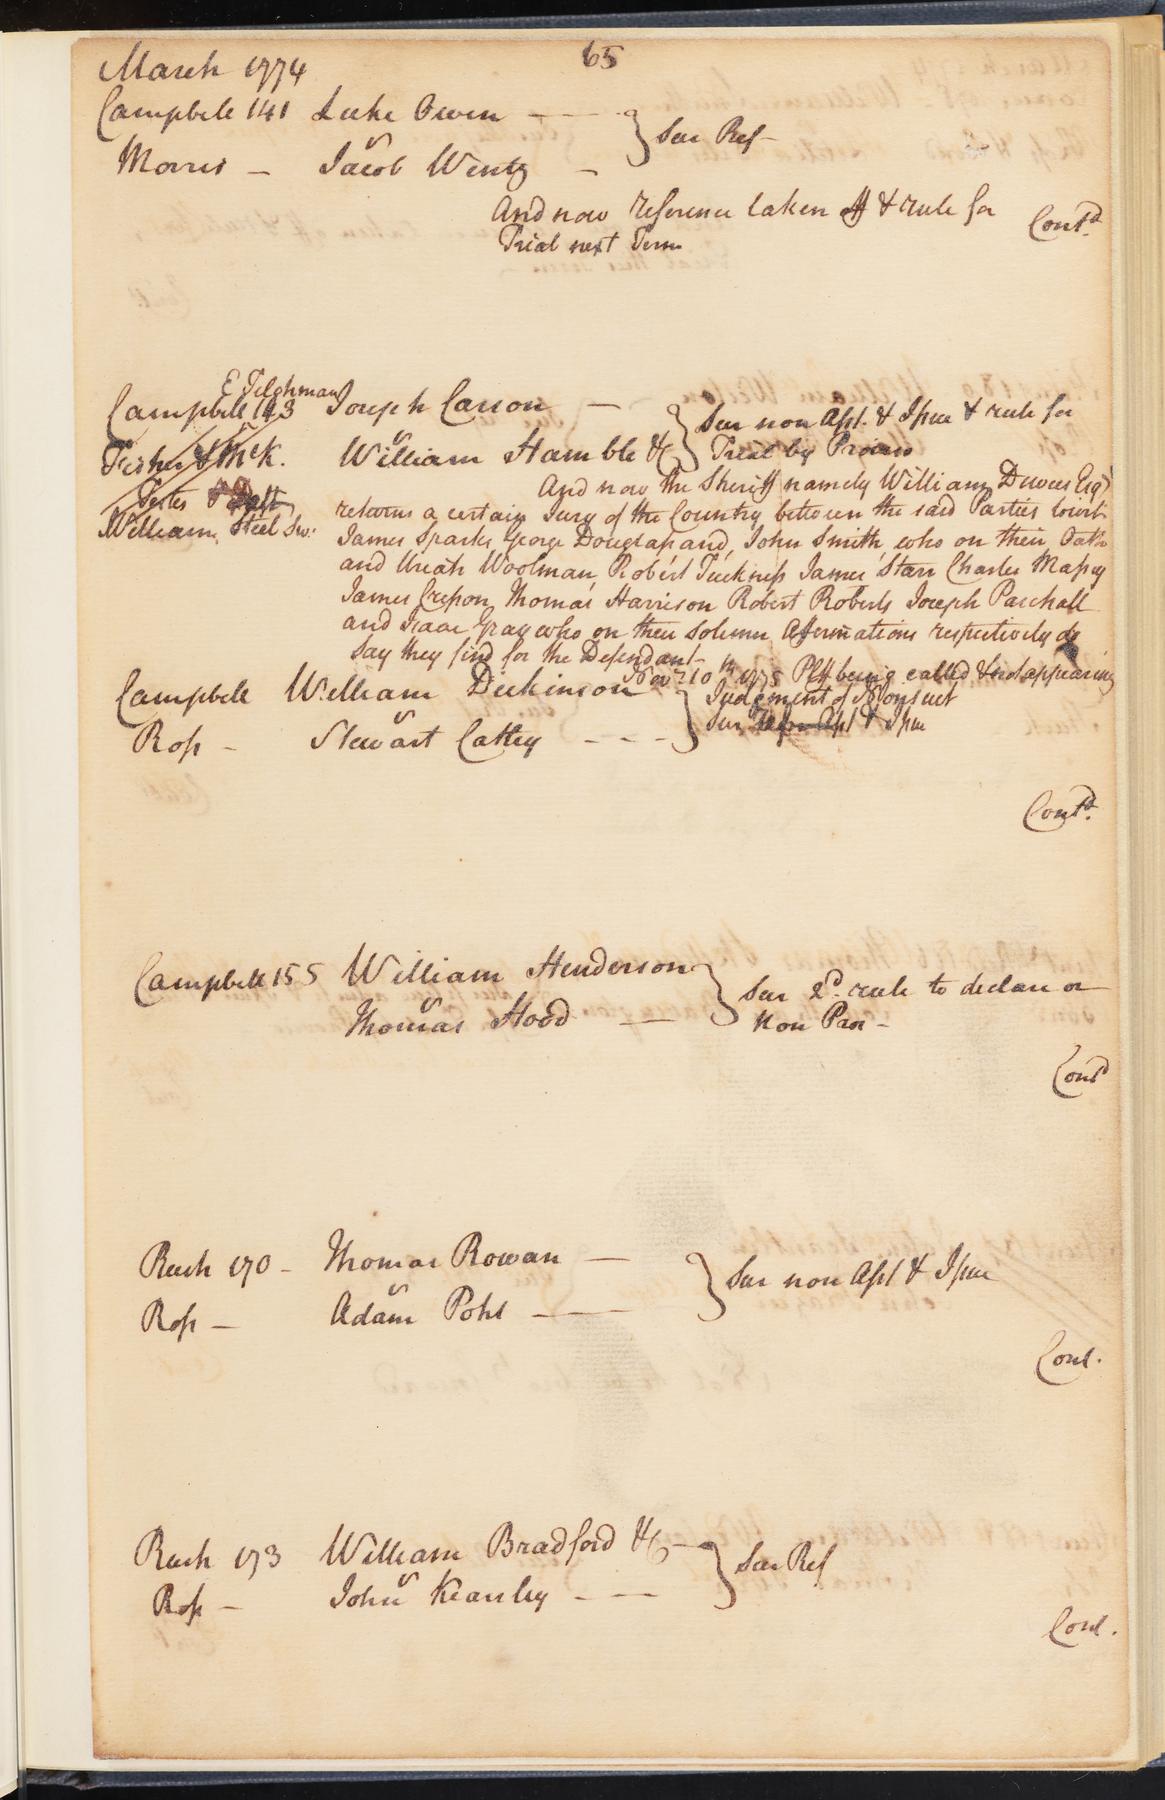 March 1774 65
Campbell 141 Luke Owen
vs
Morris Jacob Wentz
Sur Ref
And now reference taken off & rule for
Trial next Term
Contd.
E Tilghman
Campbell 143 Joseph Carson
vs
Fisher & McK. William Hamble &c
Sur non Ast. & Issue & rule for
Trial by Proviso
Testes
William Steel Sw:
And now the Sheriff namely William Dewees Esqr
returns a certain Jury of the Country between the said Parties to wit
James Sparks George Douglass and John Smith who on their Oaths
and Uriah Woolman, Robert Tuckniss James Starr Charles Massey
James Cresson Thomas Harrison Robert Roberts Joseph Paschall
and Isaac Gray who on their Solemn Afermations respectively do
Say they find for the Defendant
Novr 10th 1775 Plff being called & not appearing
Judgement of Nonsuit
Campbell William Dickinson
vs
Ross Stewart Cathey
Sur Ast & Issue
Contd.
Campbell 155 William Henderson
vs
Thomas Hood
Sur 2d. rule to declare or
Non Pros
Contd
Rush 170 Thomas Rowan
vs
Ross Adam Pohl
Sur non Ast & Issue
Cont.
Rush 173 William Bradford &c
vs
Ross John Kearsley
Sur Ref
Cont.